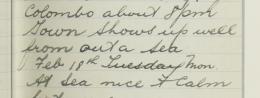 Colombo about 8pm
Town shows up well
from out a sea
Feb 18th Tuesday Mon.
At Sea nice & Calm